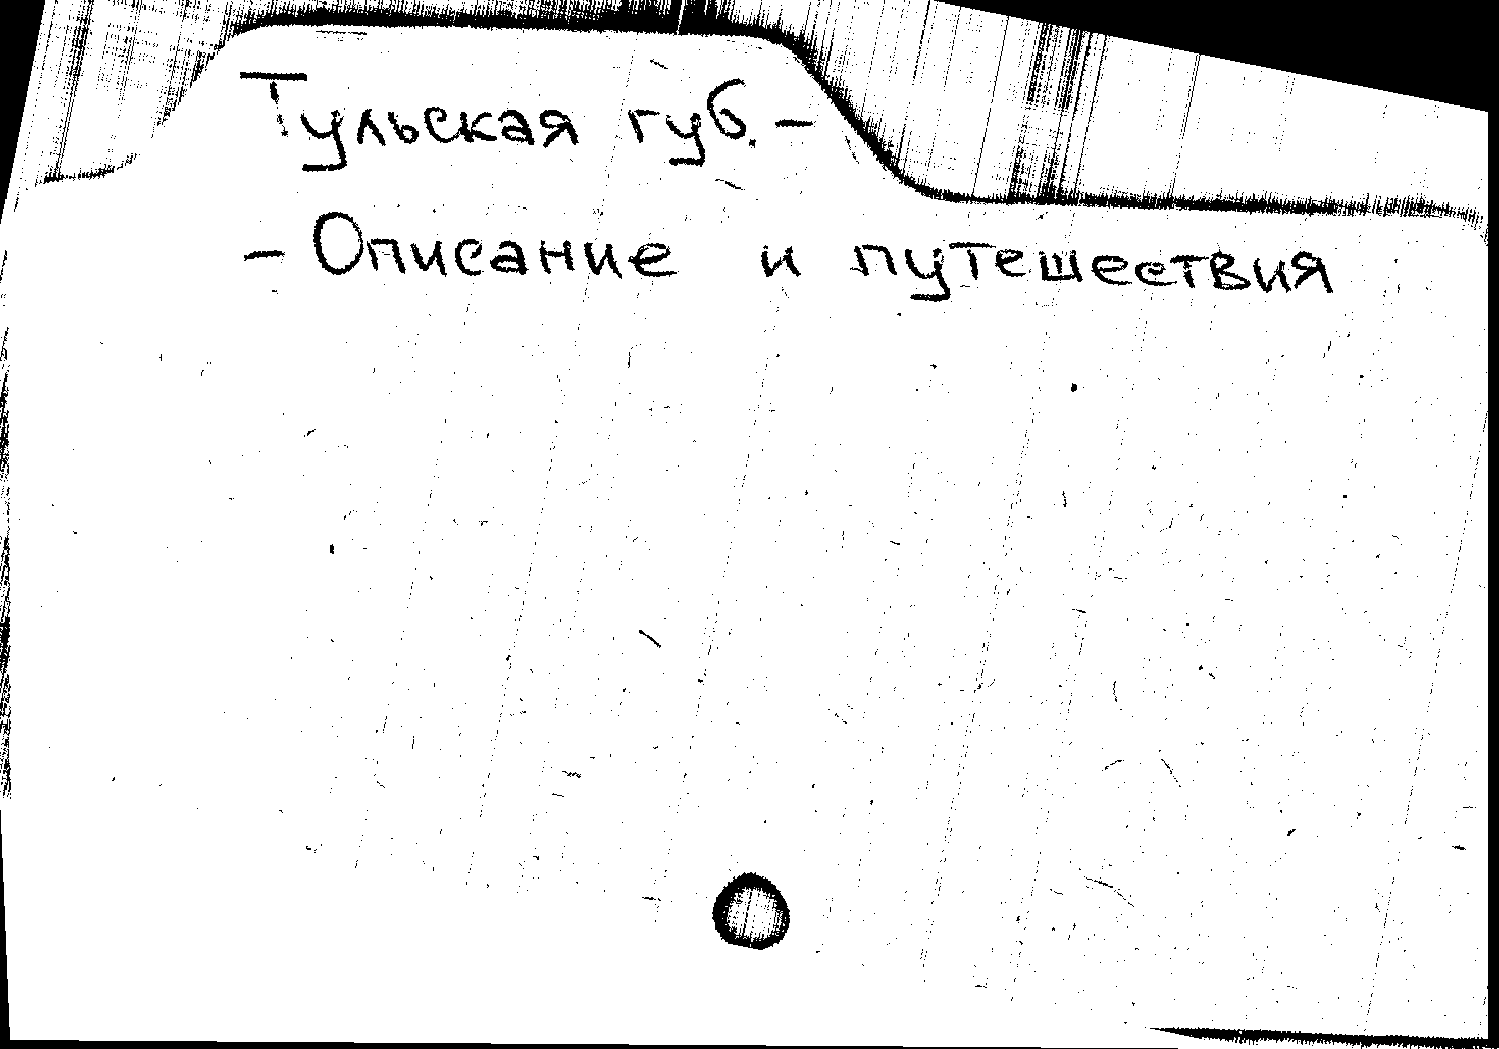 Тульская губ. –
– Описание и путешествия